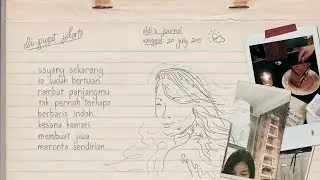 di pusat jakarta
aldi's journal
tanggal: 20 july 2015
sayang sekarang
ia sudah bertuan
rambut panjangmu
tak pernah tertupa
berbaris indah
kesana kemari
membuat jiwa
meronta sendirian